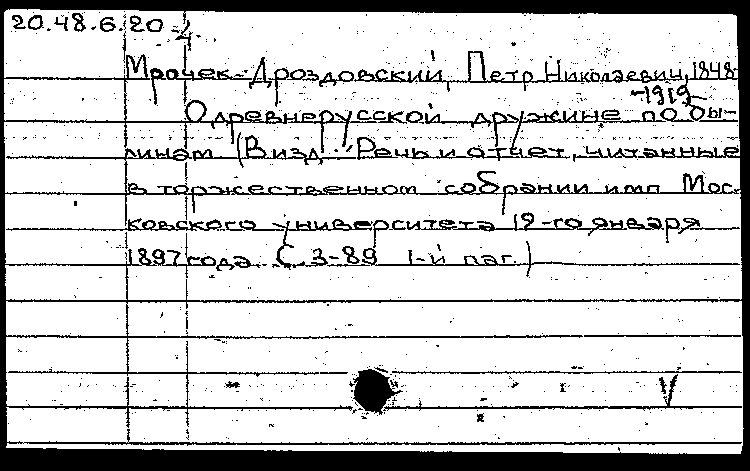 20.48.6.20
4
Мрочек-Дроздовский, Петр Николаевич, 1848-
-1919
О древнерусской дружине по бы-
линам (В изд.: Речь и отчет, читанные
в торжественном собрании имп Мос-
ковского университета 12-го января
1897 года. С. 3-89 1-й паг.)
V